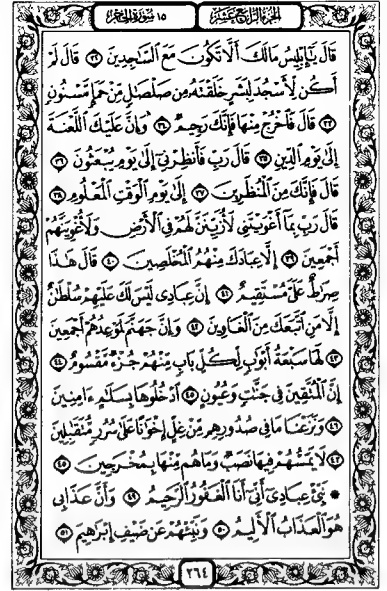 الجزء الرابع عشر ١٥ سورة الحجر
قَالَ يَٰٓإِبۡلِيسُ مَا لَكَ أَلَّا تَكُونَ مَعَ ٱلسَّٰجِدِينَ ٣٢ قَالَ لَمۡ
أَكُن لِّأَسۡجُدَ لِبَشَرٍ خَلَقۡتَهُۥ مِن صَلۡصَٰلٖ مِّنۡ حَمَإٖ مَّسۡنُونٖ
٣٣ قَالَ فَٱخۡرُجۡ مِنۡهَا فَإِنَّكَ رَجِيمٞ ٣٤ وَإِنَّ عَلَيۡكَ ٱللَّعۡنَةَ
إِلَىٰ يَوۡمِ ٱلدِّينِ ٣٥ قَالَ رَبِّ فَأَنظِرۡنِيٓ إِلَىٰ يَوۡمِ يُبۡعَثُونَ ٣٦
قَالَ فَإِنَّكَ مِنَ ٱلۡمُنظَرِينَ ٣٧ إِلَىٰ يَوۡمِ ٱلۡوَقۡتِ ٱلۡمَعۡلُومِ ٣٨
قَالَ رَبِّ بِمَآ أَغۡوَيۡتَنِي لَأُزَيِّنَنَّ لَهُمۡ فِي ٱلۡأَرۡضِ وَلَأُغۡوِيَنَّهُمۡ
أَجۡمَعِينَ ٣٩ إِلَّا عِبَادَكَ مِنۡهُمُ ٱلۡمُخۡلَصِينَ ٤٠ قَالَ هَٰذَا
صِرَٰطٌ عَلَيَّ مُسۡتَقِيمٌ ٤١ إِنَّ عِبَادِي لَيۡسَ لَكَ عَلَيۡهِمۡ سُلۡطَٰنٌ
إِلَّا مَنِ ٱتَّبَعَكَ مِنَ ٱلۡغَاوِينَ ٤٢ وَإِنَّ جَهَنَّمَ لَمَوۡعِدُهُمۡ أَجۡمَعِينَ
٤٣ لَهَا سَبۡعَةُ أَبۡوَٰبٖ لِّكُلِّ بَابٖ مِّنۡهُمۡ جُزۡءٞ مَّقۡسُومٌ ٤٤
إِنَّ ٱلۡمُتَّقِينَ فِي جَنَّٰتٖ وَعُيُونٍ ٤٥ ٱدۡخُلُوهَا بِسَلَٰمٍ ءَامِنِينَ
٤٦ وَنَزَعۡنَا مَا فِي صُدُورِهِم مِّنۡ غِلٍّ إِخۡوَٰنًا عَلَىٰ سُرُرٖ مُّتَقَٰبِلِينَ
٤٧ لَا يَمَسُّهُمۡ فِيهَا نَصَبٞ وَمَا هُم مِّنۡهَا بِمُخۡرَجِينَ ٤٨
* نَبِّئۡ عِبَادِيٓ أَنِّيٓ أَنَا ٱلۡغَفُورُ ٱلرَّحِيمُ ٤٩ وَأَنَّ عَذَابِي
هُوَ ٱلۡعَذَابُ ٱلۡأَلِيمُ ٥٠ وَنَبِّئۡهُمۡ عَن ضَيۡفِ إِبۡرَٰهِيمَ ٥١
٢٦٤